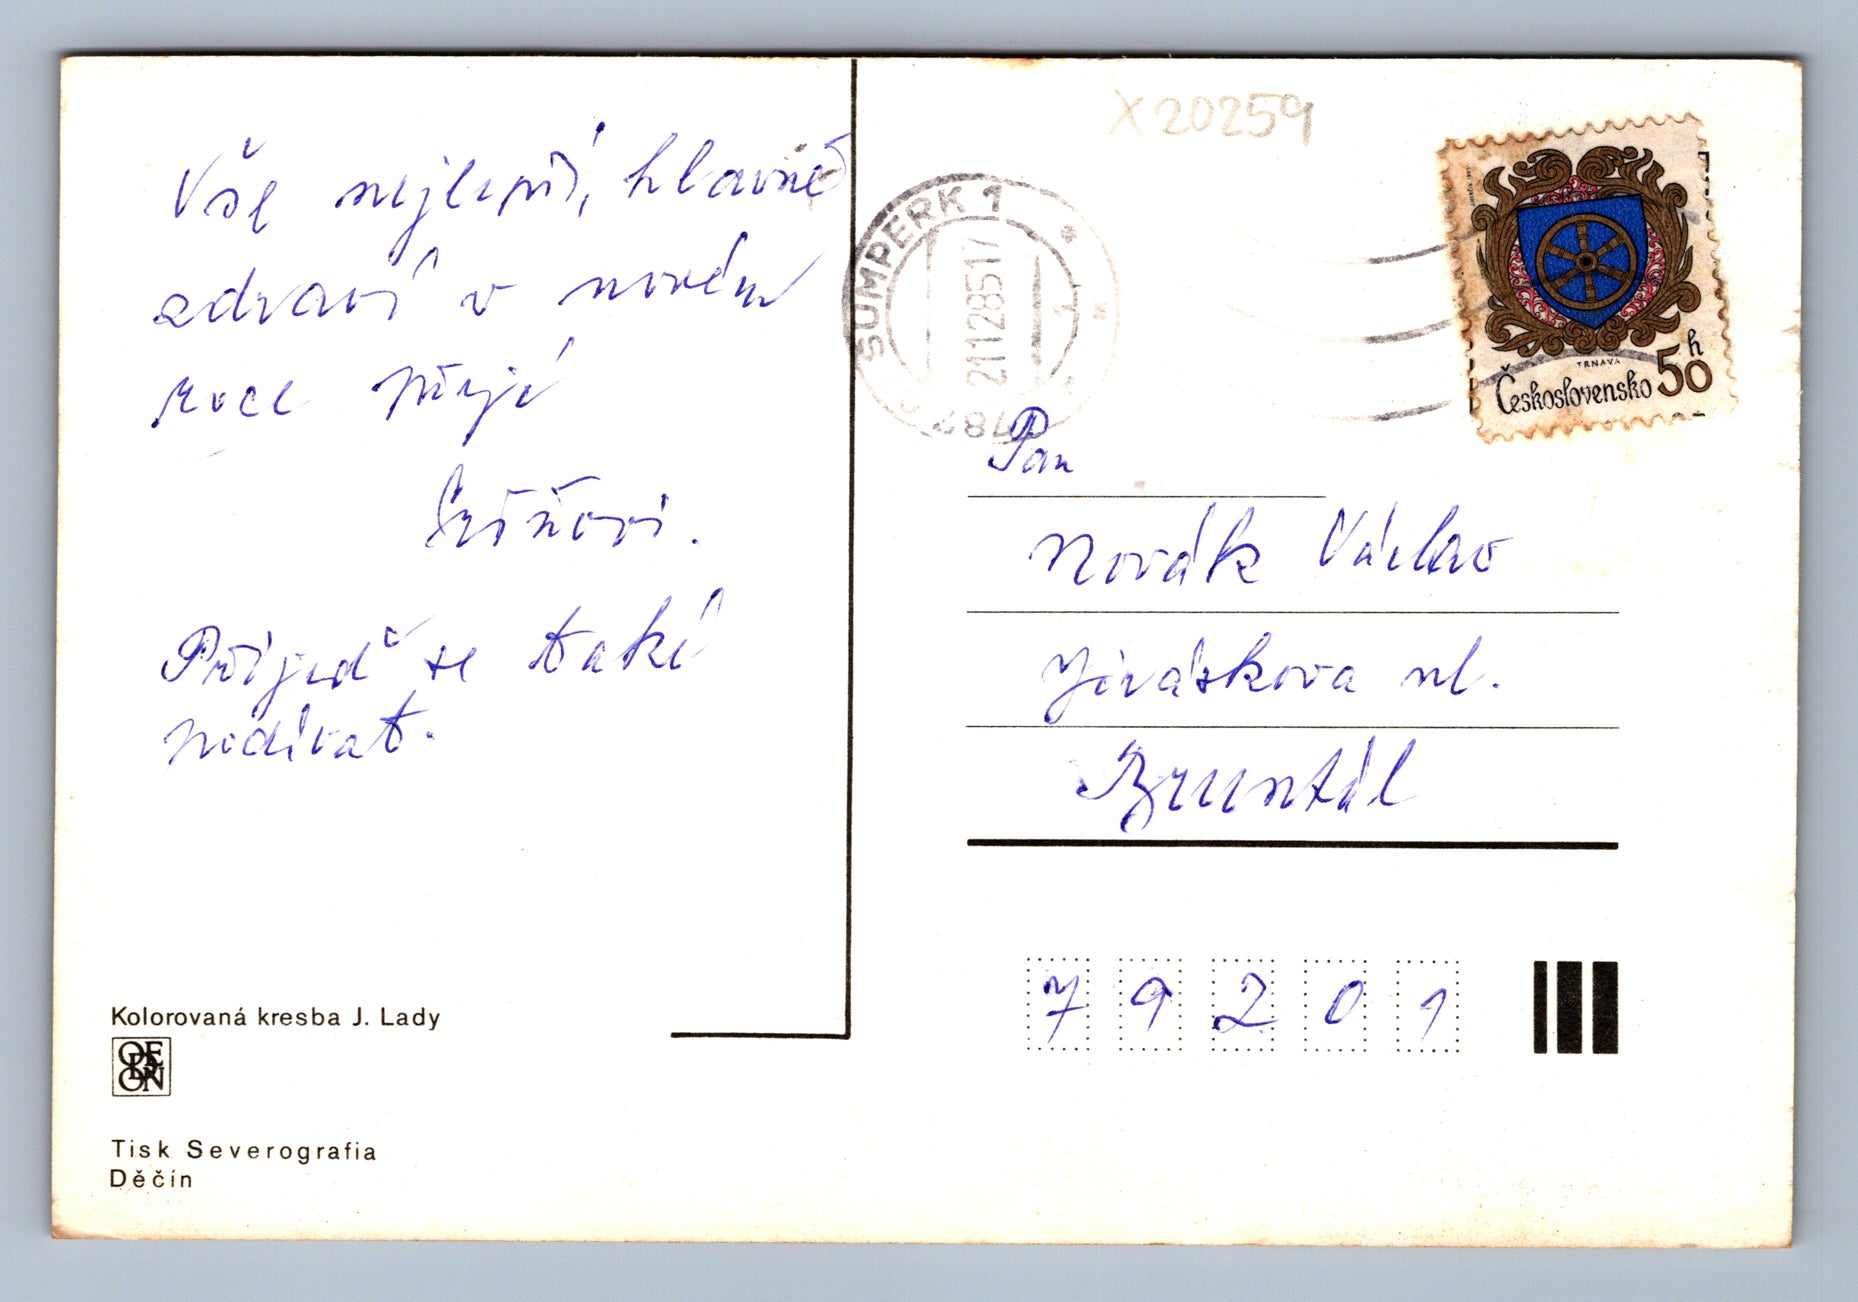 Vše nejlepší, hlavně
zdraví v novém
roce přejí
Přijeď se také
podívat.
Kolorovaná kresba J. Lady
ODEON
Tisk Severografia
Děčín
X 20259
ŠUMPERK 1
21.12.85 17
787
TRNAVA
Československo 50 h
Pan
Novák Václav
Jiráskova ul.
Bruntál
79201